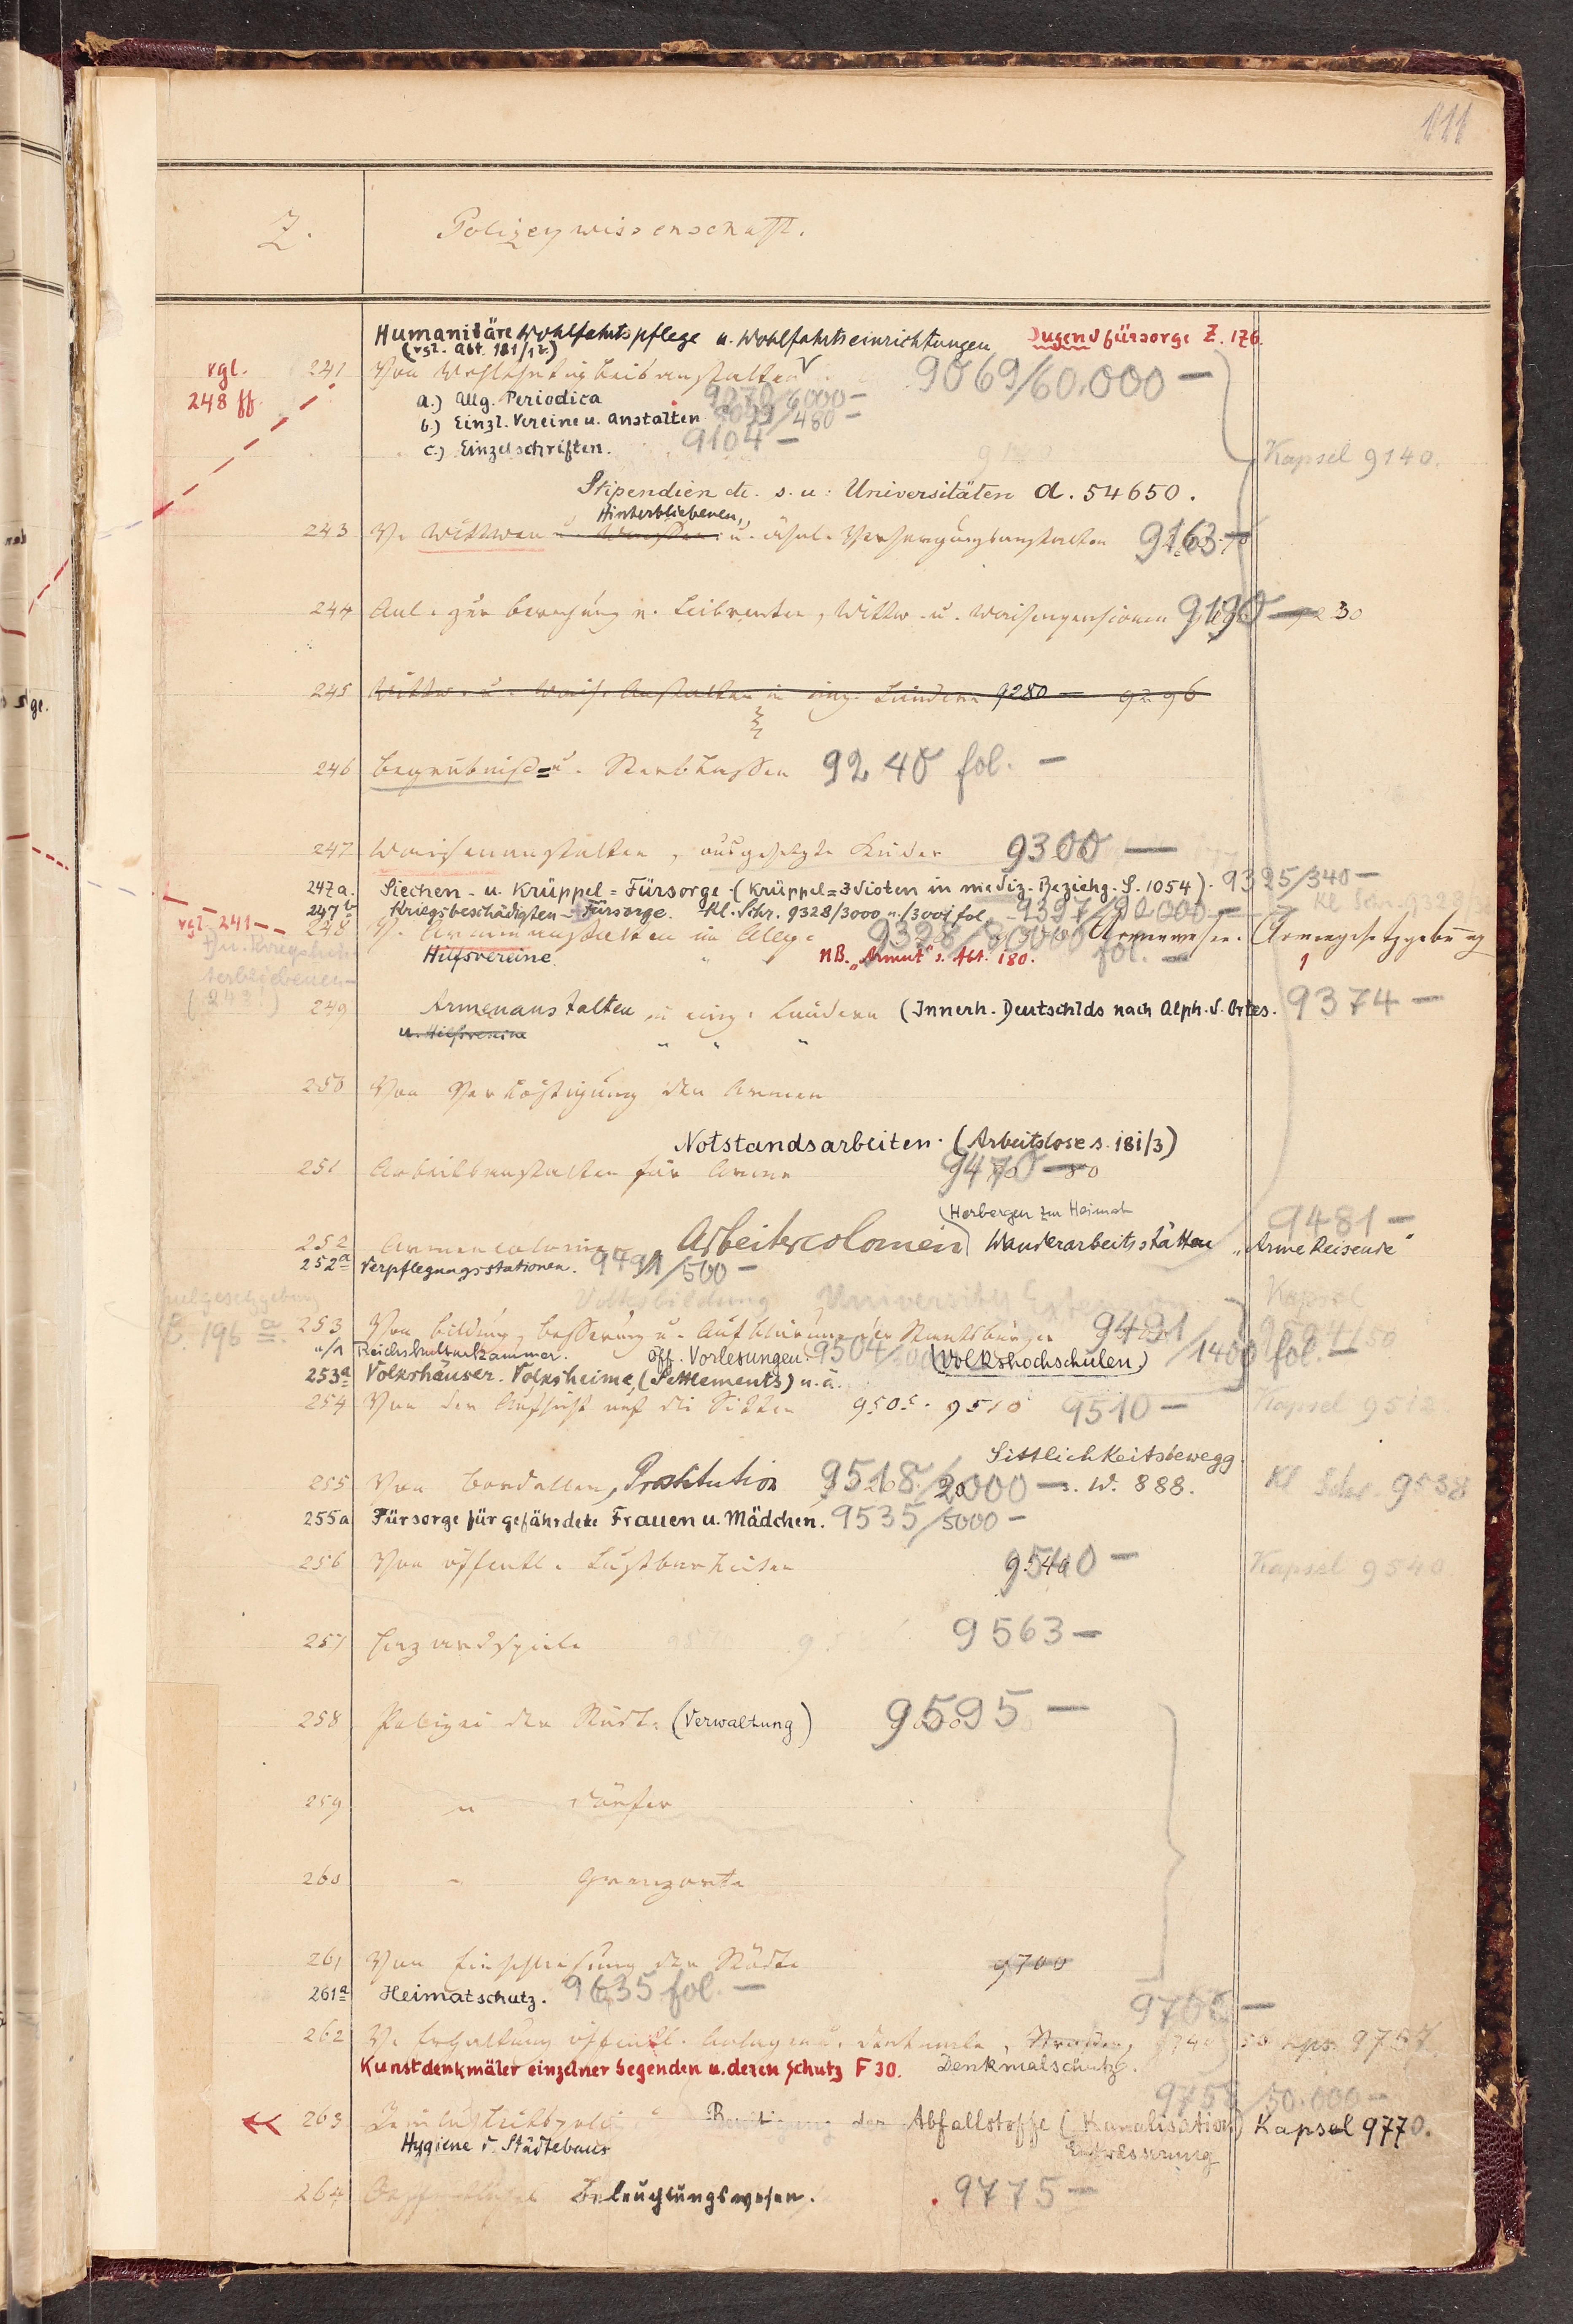 111
Z. Polizeywissenschaft.
Humanitäre Wohlfahrtspflege u. Wohlfahrtseinrichtungen Jugendfürsorge Z. 176.
(vgl. Abt. 181/12)
vgl. 248 ff.
241 Von Wohlthätigkeitsanstalten 9069/60.000 —
a.) Allg. Periodica 9070/6000 —
b.) Einzl. Vereine u. Anstalten /480 —
c.) Einzelschriften. 9104 — Kapsel 9140.
Stipendien etc. s. u. Universitäten A. 54650.
Hinterbliebenen,,
243 V. Wittwen u. Waisen u. ähnl. Versorgungsanstalten 9163
244 Anl. zur Berechnung v. Leibrenten, Wittw. u. Waisenpensionen 9190 — 9230
245 Wittw. u. Wais. Anstalten in einz. Ländern 9280 — 9296
246 Begräbniß= u. Sterbkassen 9240 fol. —
247 Waisenanstalten, ausgesetzte Kinder 9300 —
247a. Siechen- u. Krüppel=Fürsorge. (Krüppel=Idioten in mediz. Beziehg. S. 1054). 9325/340 —
247b Kriegsbeschädigten=Fürsorge. Kl. Schr. 9328/3000 u./3001 fol. 9327/90.000 — Kl. Schr. 9328
vgl. 241
248 V. Armenanstalten im Allg. 9328/80000 fol. — Armenwesen. Armengesetzgebung
Hilfsvereine. NB. „Armut" s. Abt. 180.
249 Armenanstalten in einz. Ländern (Innerh. Deutschlds nach Alph. d. Ortes. 9374 —
u. Hilfsvereine
250 Von Verköstigung der Armen
Notstandsarbeiten. (Arbeitslose s. 181/3)
251 Arbeitsanstalten für Arme 9470 — 80
(Herbergen zur Heimat 9481 —
252 Armencolonien Arbeitercolonien Wanderarbeitsstätten „Arme Reisende"
252a Verpflegungsstationen. 9491/500 —
Volksbildung University Extension Kapsel
196a.
253 Von Bildung, Besserung u. Aufklärung der Staatsbürger 9491/1400 fol. — 9504/50
a/1 Reichskulturkammer. öff. Vorlesungen. 9504 (Volkshochschulen.)
253a Volkshäuser. Volksheime, (Settlements) u. ä.
254 Von der Aufsicht auf die Sitten 9505. 9510 9510 — Kapsel 9512
Sittlichkeitsbewegg.
255 Von Bordellen, Prostitution 9518/2000 — s. W. 888. Kl. Schr. 9538
255a Fürsorge für gefährdete Frauen u. Mädchen. 9535/5000 —
256 Von öffentl. Lustbarkeiten 9540 — Kapsel 9540
257 Hazardspiele 9563 —
258 Polizei der Städte (Verwaltung) 9595 —
259 " Dörfer
260 " Grenzorte
261 Von der Städte 9700
261a Heimatschutz. 9635 fol. —
9700 —
262 V. Erhaltung öffentl. Anlagen u. Denkmale, Strassen, 9740 50 Kps. 9757
Kunstdenkmäler einzelner Gegenden u. deren Schutz F 30. Denkmalschutz.
/50.000 —
263 Reinlichkeitspolizei Beseitigung der Abfallstoffe (Kanalisation) Kapsel 9770.
Hygiene d. Städtebaus Entwässerung
264 Beleuchtungswesen. 9775 —